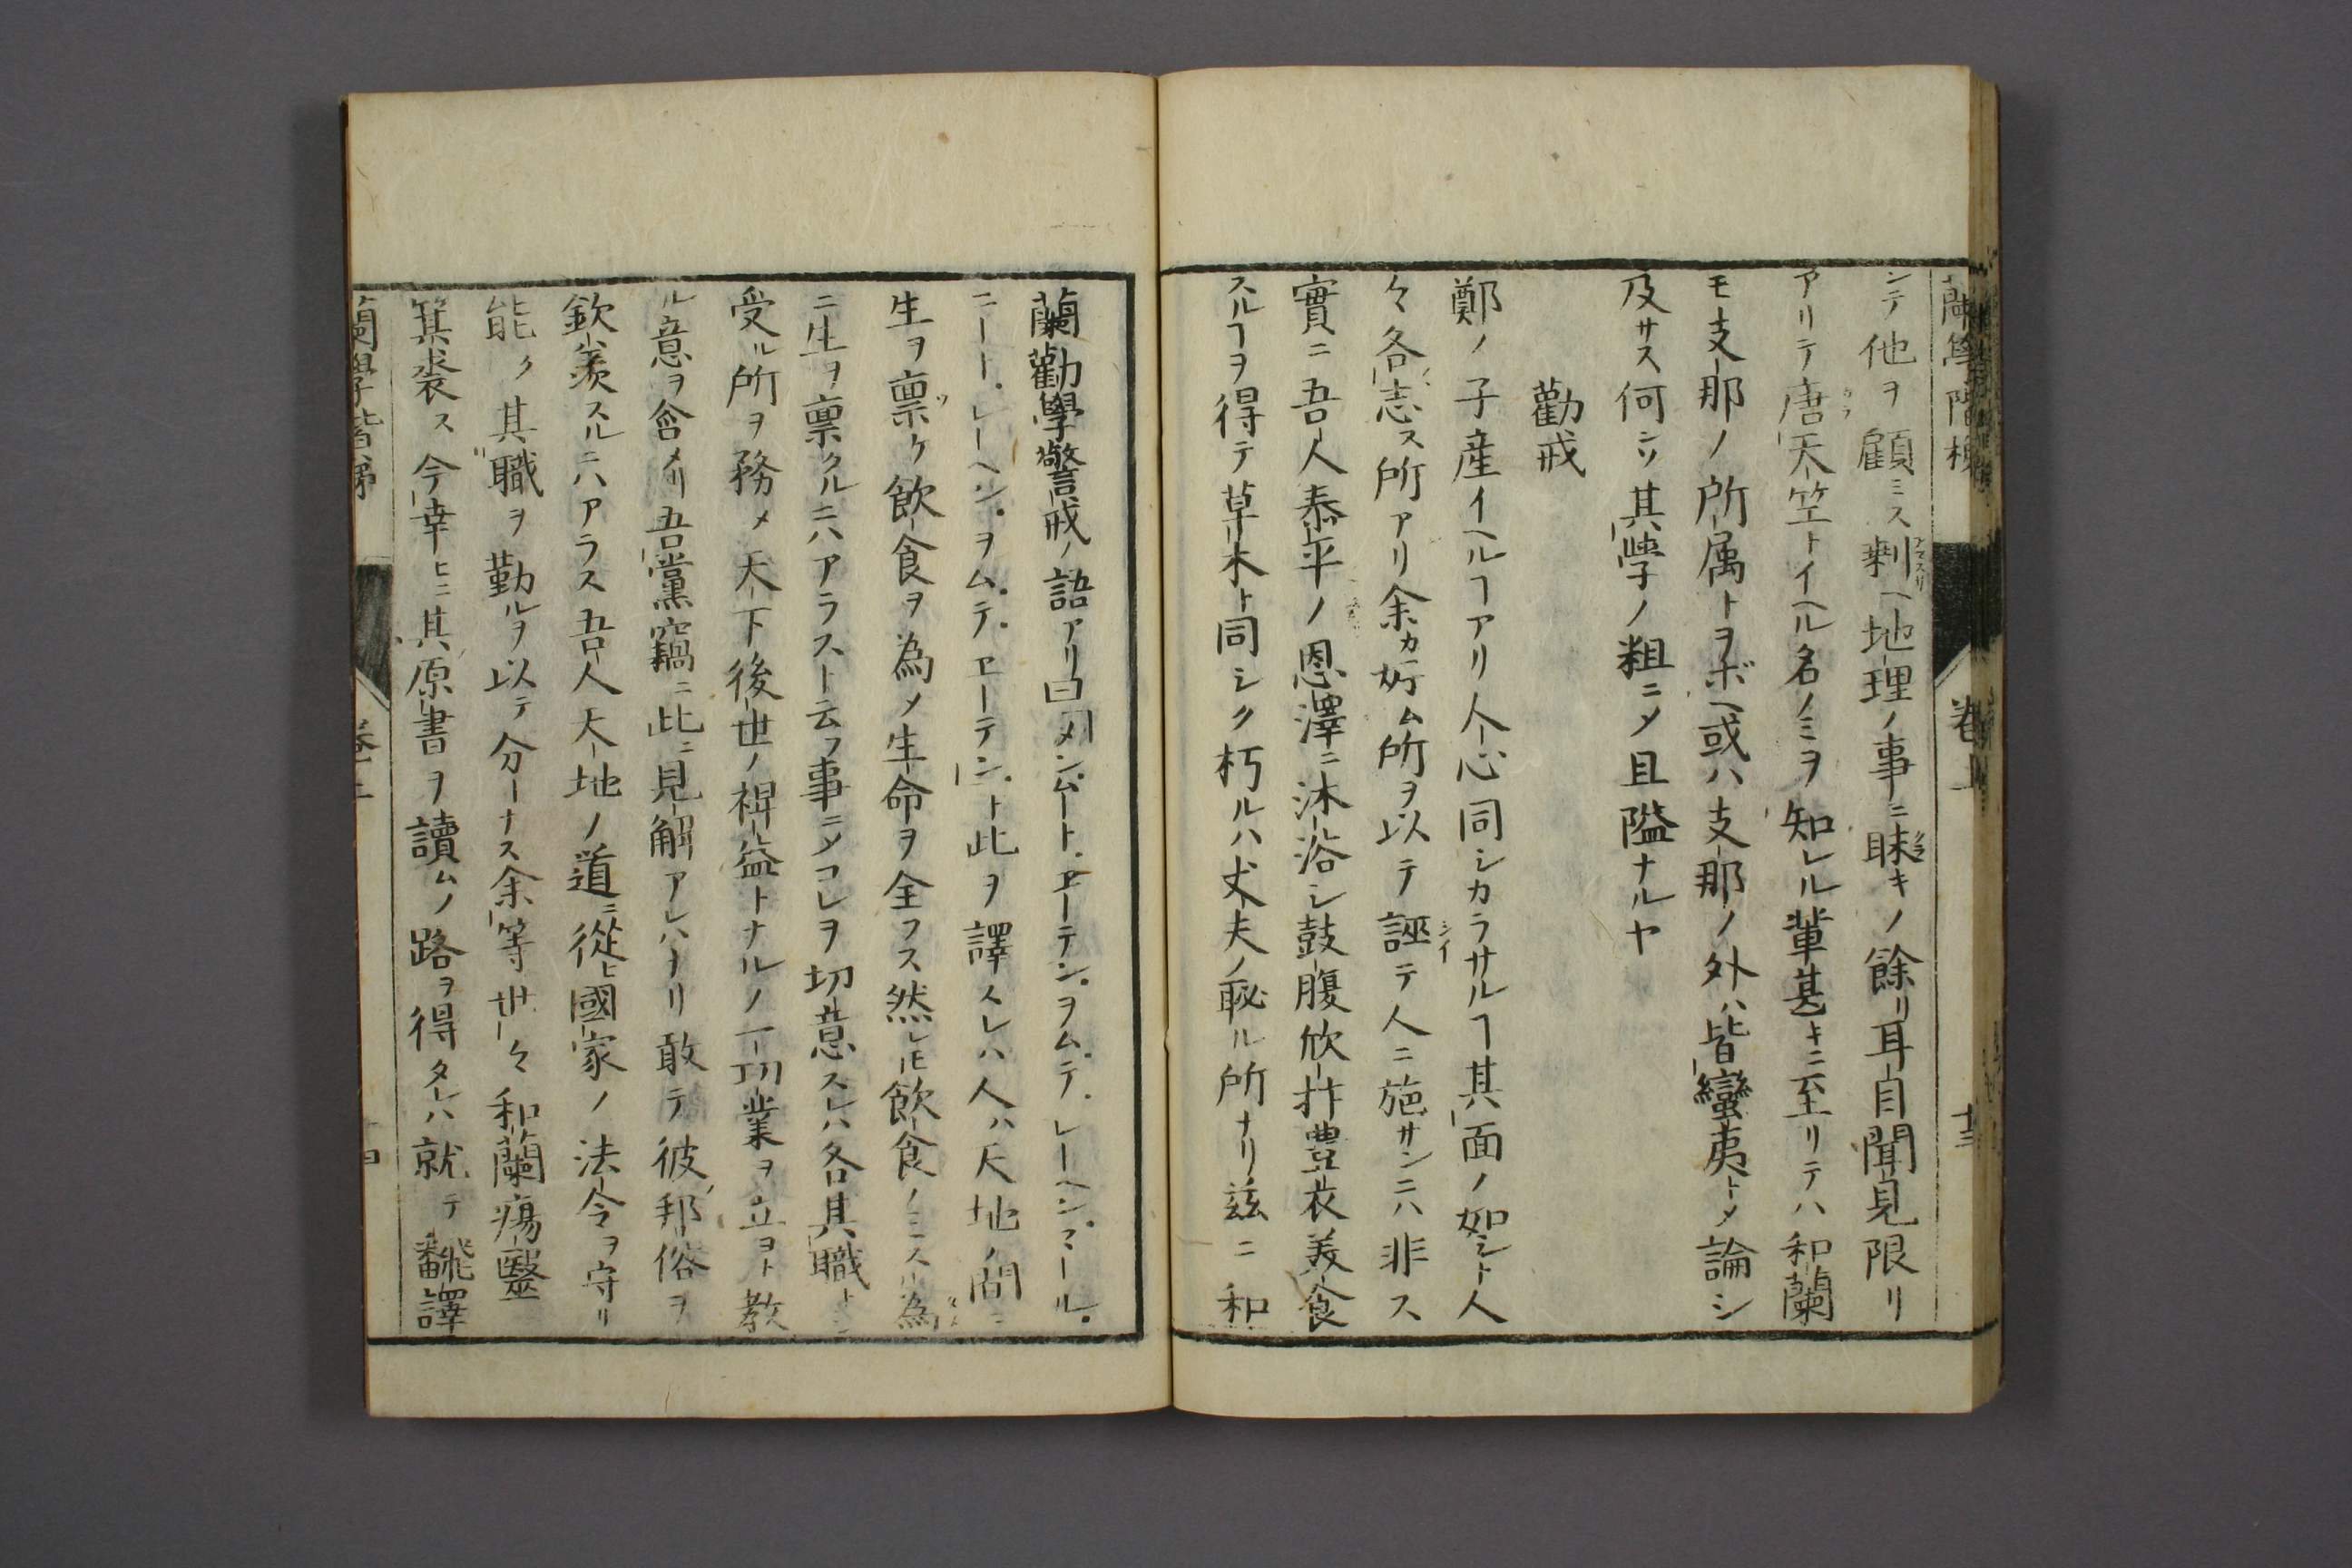 蘭學階梯 卷上 十三
シテ他ヲ顧ミス剰ヘ地理ノ事ニ昧キノ餘リ耳目聞見限リ
アリテ唐天竺トイヘル名ノミヲ知レル輩甚キニ至リテハ和蘭
モ支那ノ所属トヲボヘ或ハ支那ノ外ハ皆蠻夷トメ論シ
及サス何ンソ其学ノ粗ニメ且隘ナルヤ
勸戒
鄭ノ子産イヘルヿアリ人心同シカラサルヿ其面ノ如シト人
々各志ス所アリ余カ好ム所ヲ以テ誣テ人ニ施サンニハ非ス
實ニ吾人泰平ノ恩澤ニ沐浴シ鼓腹欣抃豊衣美食
スルヿヲ得テ草木ト同シク朽ルハ丈夫ノ恥ル所ナリ茲ニ和
蘭勸學警戒ノ語アリ曰メンムートヱーテンヲムテレーヘンマール
ニートレーヘンヲムテヱーテント此ヲ譯スレハ人ハ天地ノ間ニ
生ヲ禀ケ飲食ヲ為メ生命ヲ全フス然レ𪜈飲食ノミス為
ニ生ヲ禀クルニハアラスト云フ事ニメコレヲ切意スレハ各其職トシ
受ル所ヲ務メ天下後世ノ裨益トナルノ一功業ヲ立ヨト教
ル意ヲ含メリ吾黨竊ニ此ニ見解アレハナリ敢テ彼邦俗ヲ
欽羨スルニハアラス吾人天地ノ道ニ從ヒ國家ノ法令ヲ守リ
能ク其職ヲ勤ルヲ以テ分ーナス余等世々和蘭瘍醫
箕裘ス今幸ヒニ其原書ヲ讀ムノ路ヲ得タレハ就テ飜譯
蘭學階梯